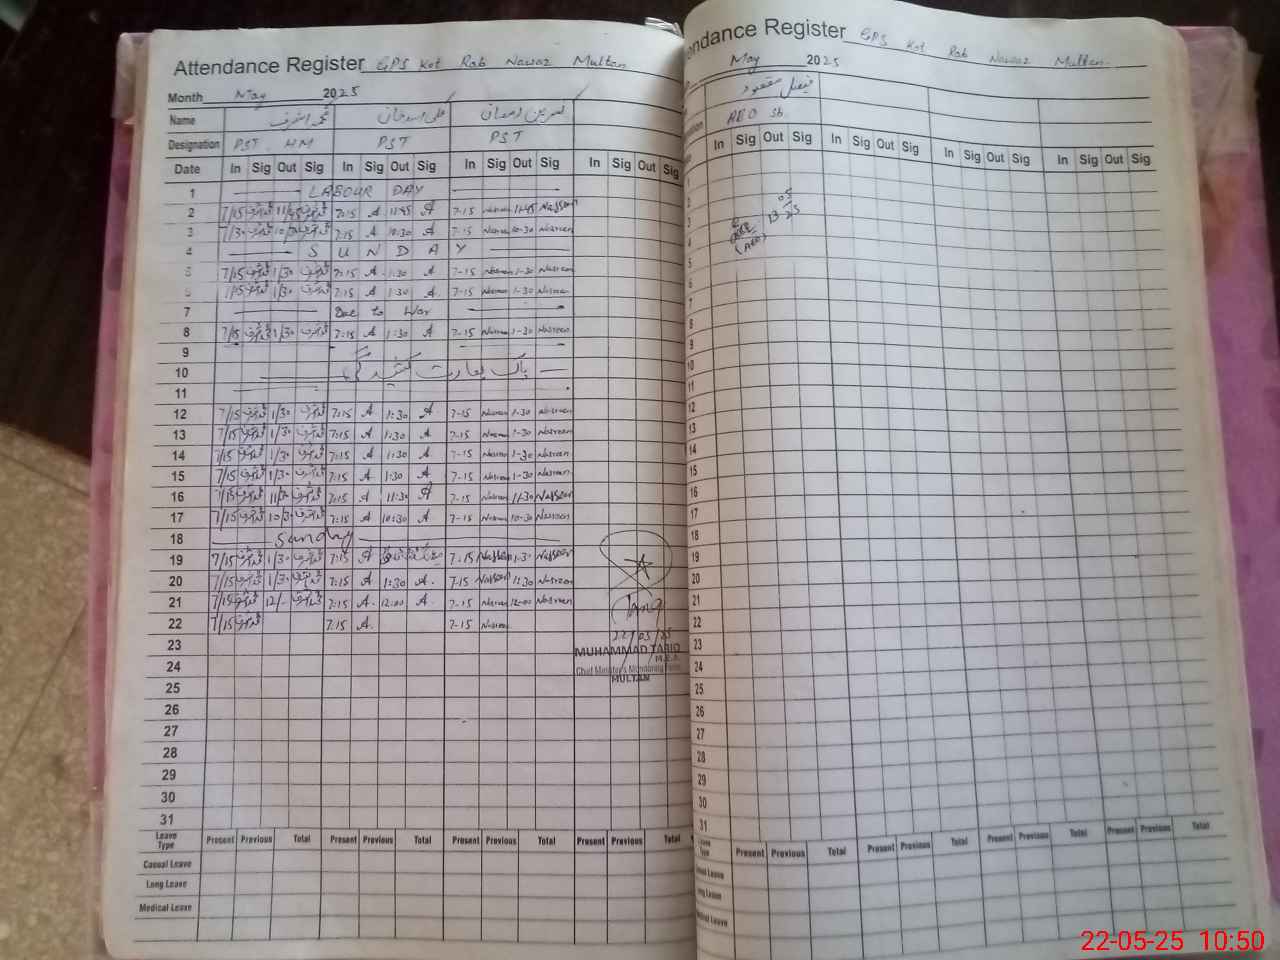 Attendance Register GPS Kot Rab Nawaz Multan
Month May 2025
Name محمد اشرف علی اسد خان نسرین رمضان
Designation PST. HM PST PST
Date In Sig Out Sig In Sig Out Sig In Sig Out Sig In Sig Out Sig
1 LABOUR DAY
2 7/15 11/45 7:15 A 11:45 A 7-15 Nasreen 11-45 Nasreen
3 7/30 10/30 7:15 A 10:30 A 7-15 Nasreen 10-30 Nasreen
4 SUNDAY
5 7/15 1/30 7:15 A 1:30 A 7-15 Nasreen 1-30 Nasreen
6 7/15 1/30 7:15 A 1:30 A. 7-15 Nasreen 1-30 Nasreen
7 Due to War
8 7/15 1/30 7:15 A 1:30 A 7-15 Nasreen 1-30 Nasreen
9
10 پاک بھارت کشیدگی
11
12 7/15 1/30 7:15 A 1:30 A. 7-15 Nasreen 1-30 Nasreen
13 7/15 1/30 7:15 A 1:30 A 7-15 Nasreen 1-30 Nasreen
14 7/15 1/30 7:15 A 1:30 A 7-15 Nasreen 1-30 Nasreen
15 7/15 1/30 7:15 A 1:30 A 7-15 Nasreen 1-30 Nasreen
16 7/15 11/30 7:15 A 11:30 A 7-15 Nasreen 11-30 Nasreen
17 7/15 10/30 7:15 A 10:30 A 7-15 Nasreen 10-30 Nasreen
18 Sunday
19 7/15 1/30 7:15 A 7-15 Nasreen 1-30 Nasreen
20 7/15 1/30 7:15 A 1:30 A. 7-15 Nasreen 1:30 Nasreen
21 7/15 12/- 7:15 A. 12:00 A. 7-15 Nasreen 12-00 Nasreen
22 7/15 7:15 A. 7-15 Nasreen
22/05/25
23
MUHAMMAD TARIQ
M.E.A
24
Chief Minister's Monitoring Force
MULTAN
25
26
27
28
29
30
31
Leave Type Present Previous Total Present Previous Total Present Previous Total Present Previous Total
Casual Leave
Long Leave
Medical Leave
endance Register GPS Kot Rab Nawaz Multan.
May 2025
فیصل مقصود
AEO Sb.
In Sig Out Sig In Sig Out Sig In Sig Out Sig In Sig Out Sig
1
2
3
13 05 25
4
(AEO)
5
6
7
8
9
10
11
12
13
14
15
16
17
18
19
20
21
22
23
24
25
26
27
28
29
30
31
Leave Type Present Previous Total Present Previous Total Present Previous Total Present Previous Total
Leave
Leave
Leave
22-05-25 10:50